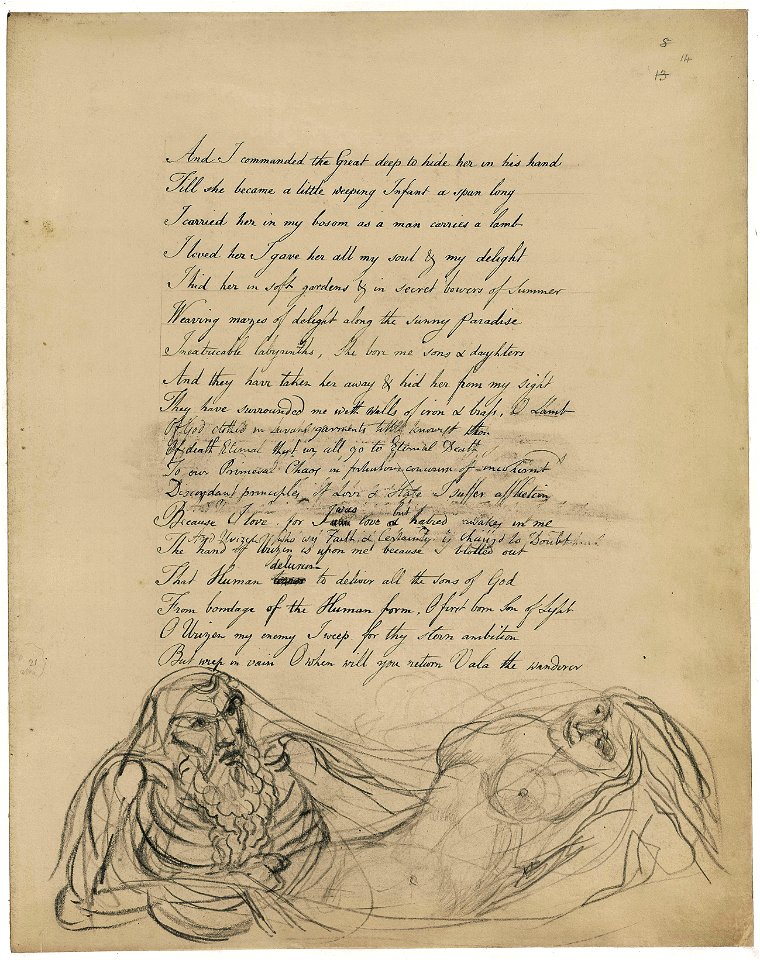 8
14
13
And I commanded the Great deep to hide her in his hand
Till she became a little weeping Infant a span long
I carried her in my bosom as a man carries a lamb
I loved her I gave her all my soul & my delight
I hid her in soft gardens & in secret bowers of Summer
Weaving mazes of delight along the sunny Paradise
Inextricable labyrinths, She bore me sons & daughters
And they have taken her away & hid her from my sight
They have surrounded me with walls of iron & brass, O Lamb
Of God clothed in Luvahs garments little knowest thou
Of death Eternal that we all go to Eternal Death
To our Primeval Chaos in fortuitous concourse of incoherent
Discordant principles of Love & Hate I suffer affliction
Because I love. for I was love but hatred awakes in me
And Urizen who was Faith & Certainty is changd to Doubt
The hand of Urizen is upon me because I blotted out
That Human delusion to deliver all the sons of God
From bondage of the Human form, O first born Son of Light
O Urizen my enemy I weep for thy stern ambition
But weep in vain O when will you return Vala the wanderer